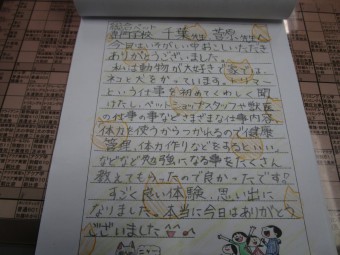 総合ペット
専門学校 千葉先生 菅原先生へ
今日はいそがしい中おこしいただき
ありがとうございました。
私は動物が大好きで家では、
ネコと犬をかっています。トリマー
という仕事を初めてくわしく聞
けたし、ペットショップスタッフや獣医
の仕事の事などさまざまな仕事内容、
体力を使うからつかれるので健康
管理、体力作りなどをするといい、
などなど勉強になる事をたくさん
教えてもらったので良かったです!
すごく良い体験、思い出に
なりました。本当に今日はありがとう
ございました
ニャー